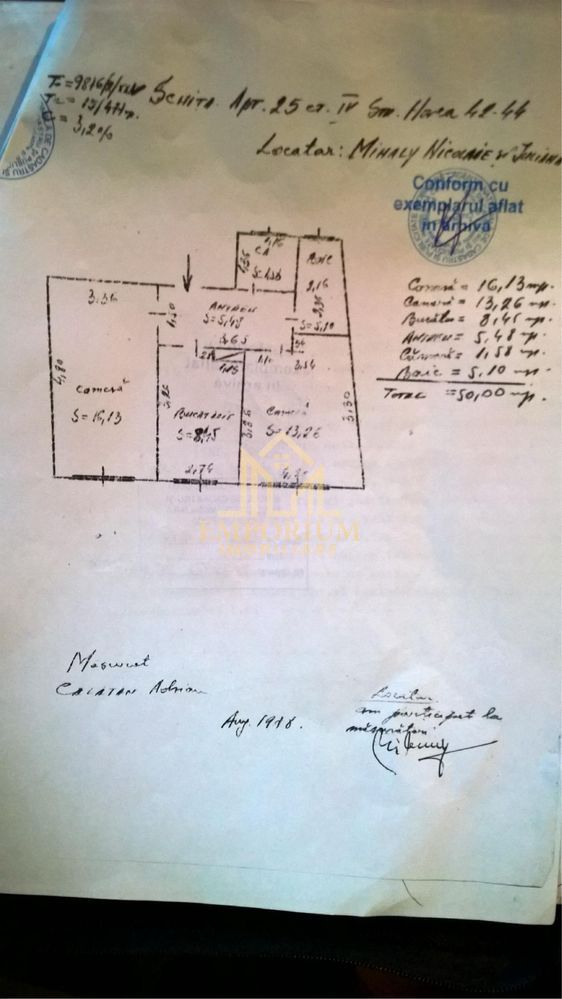 Schița Apt. 25 et. IV Str. Horea 42-44
3,2%
Locatar: MIHALY NICOLAIE și
Conform cu
exemplarul aflat
în arhivă
Cameră = 16,13 mp.
Cameră = 13,26 mp.
Bucăt. = 8,45 mp.
Antreu = 5,48 mp.
Cămară = 1,58 mp.
Baie = 5,10 mp.
TOTAL = 50,00 mp.
CĂ
S=1,58
Baie
2,16
S=5,10
3,36
1,50
ANTREU
S=5,48
3,65
3,54
4,80
Cameră
S=16,13
Bucătărie
S=8,45
2,74
3,86
Cameră
S=13,26
3,30
EMPORIUM
IMOBILIARE
Măsurat
CALATAN Adrian
Aug. 1978.
Locatar
am participat la
măsurători